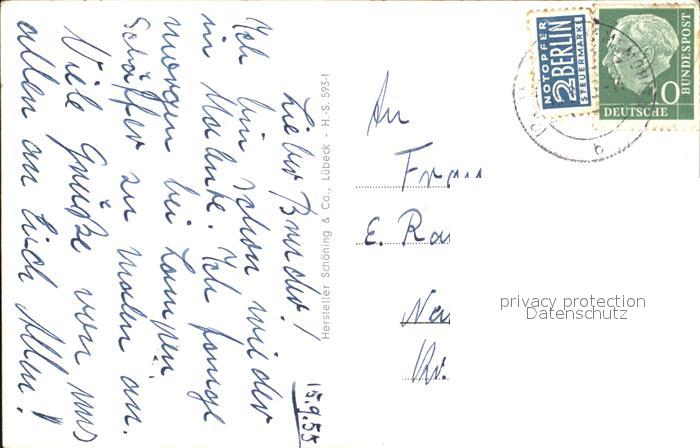 15.9.55
Lieber Bruder!
Ich bin schon wieder
in Malente. Ich fange
morgen bei Lampen
Schäffer zu malen an.
Viele Grüße von uns
allen an Euch Allen!
Hersteller Schöning & Co., Lübeck · H.-S. 593-1
An
Frau
E. Ra
Ne
Kr.
NOTOPFER
2 BERLIN
STEUERMARKE
DEUTSCHE
BUNDESPOST
0
privacy protection
Datenschutz